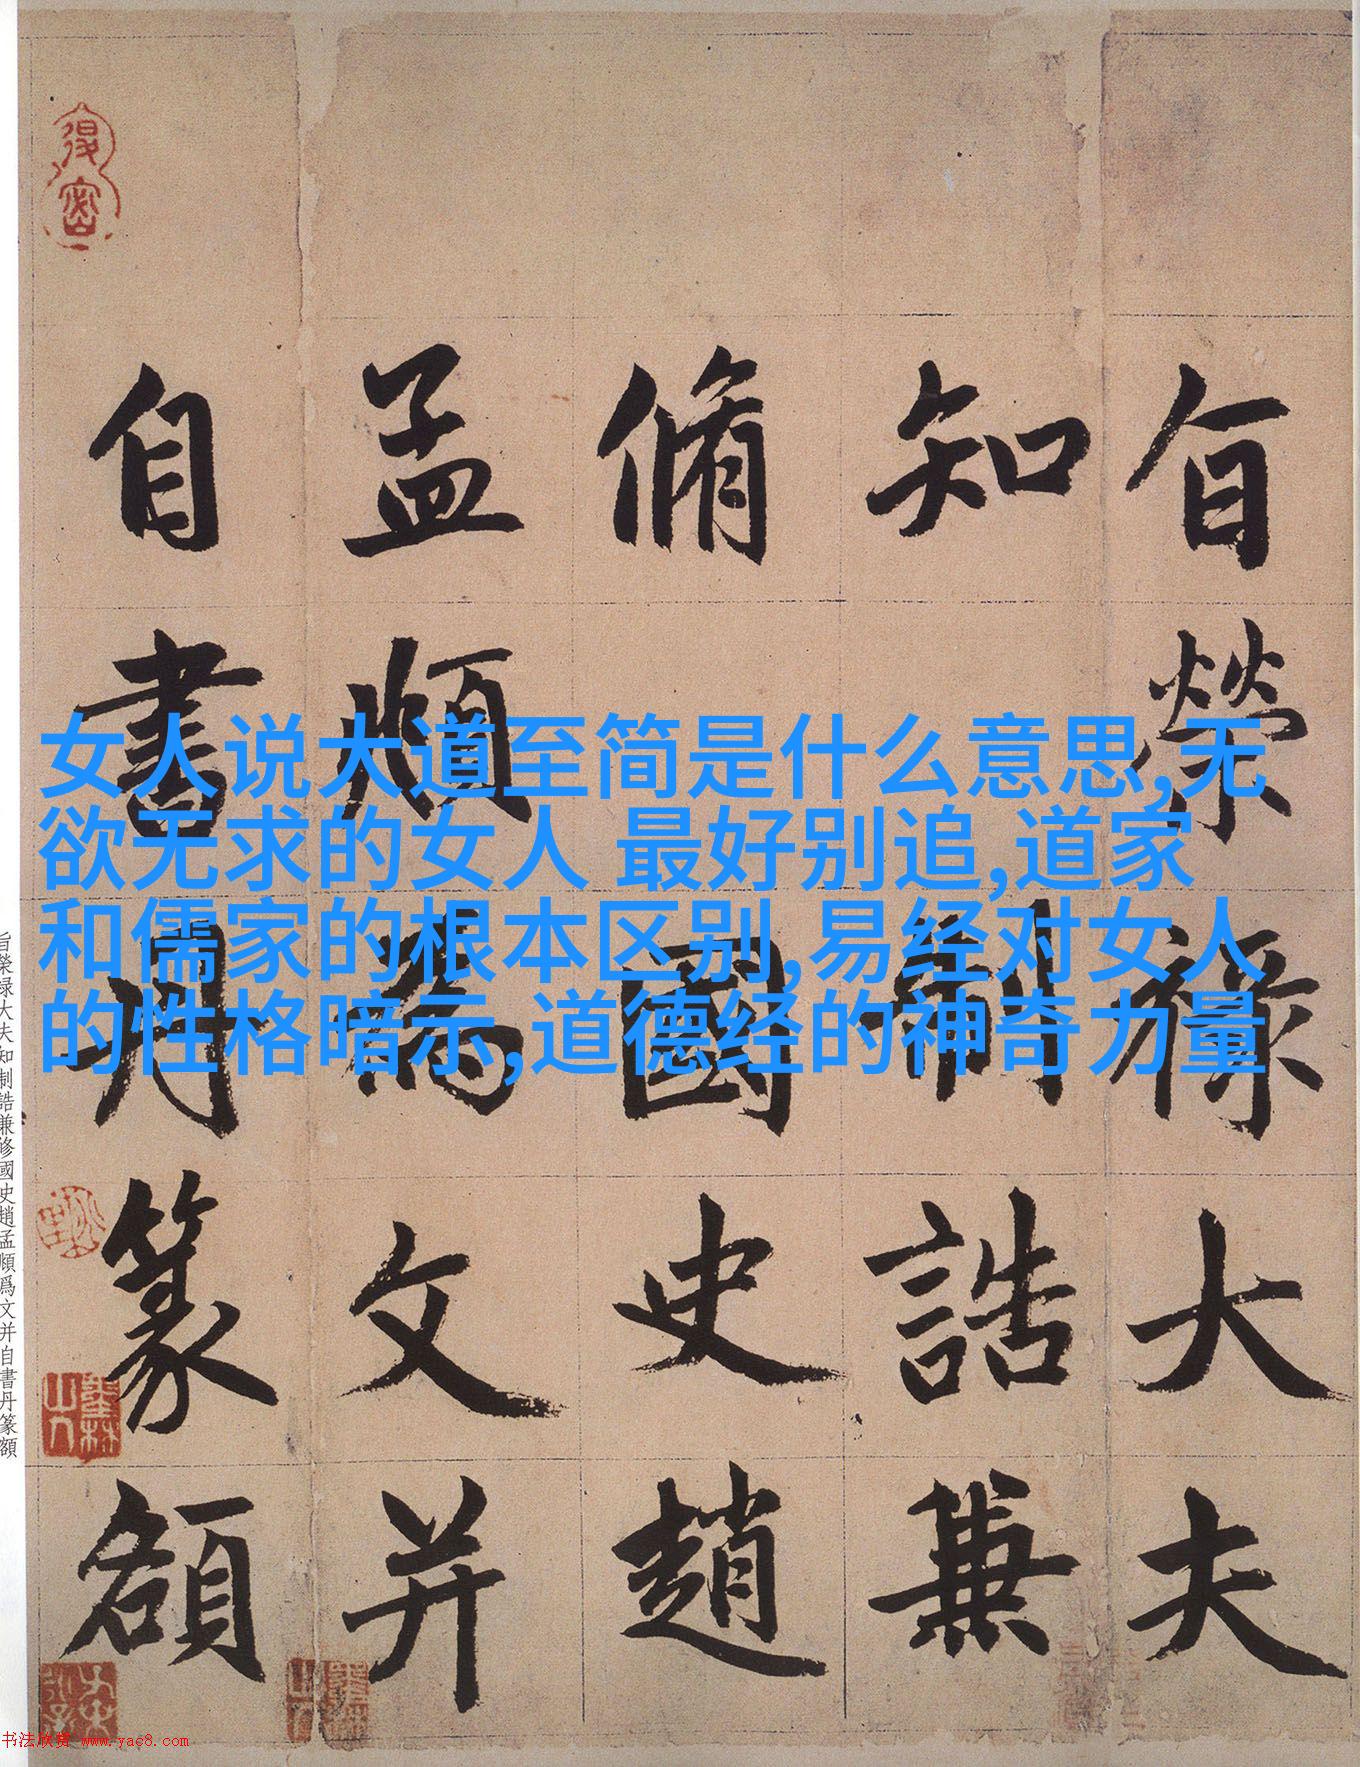 女人说大道至简是什么意思,无
欲无求的女人 最好别追,道家
和儒家的根本区别,易经对女人
的性格暗示,道德经的神奇力量
旨榮祿大夫
知制誥兼
脩國史趙
孟頫為文并
自書丹篆額
旨榮祿大夫知制誥兼修國史趙孟頫爲文并自書丹篆額
书法欣赏 www.yac8.com